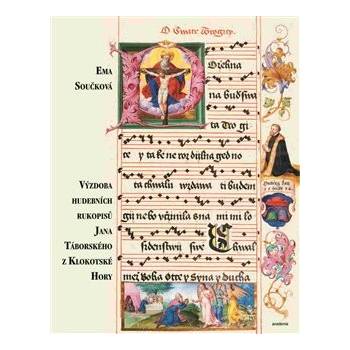 EMA
SOUČKOVÁ
VÝZDOBA
HUDEBNÍCH
RUKOPISŮ
JANA
TÁBORSKÉHO
Z KLOKOTSKÉ
HORY
O Swate Trogicy
na budſwa
ta Tro gi
te y ta ke ne roz dijlna ged no
ta chwalu wzdawa ti budem
gij nebo vcžinila s na mi mi lo
ſrdenſtwij ſwe Chwal
mez Boha Otce y Syna y Ducha
academia